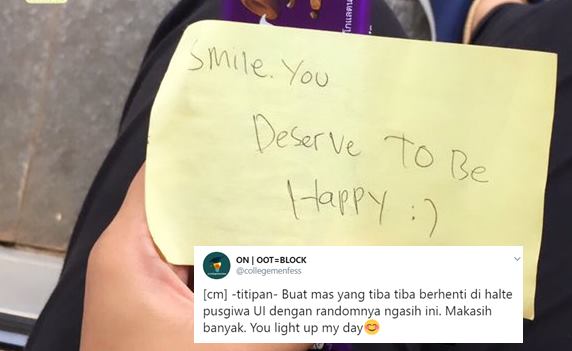 Smile. You
Deserve To Be
Happy :)
ON | OOT=BLOCK
@collegemenfess
[cm] -titipan- Buat mas yang tiba tiba berhenti di halte
pusgiwa UI dengan randomnya ngasih ini. Makasih
banyak. You light up my day😊